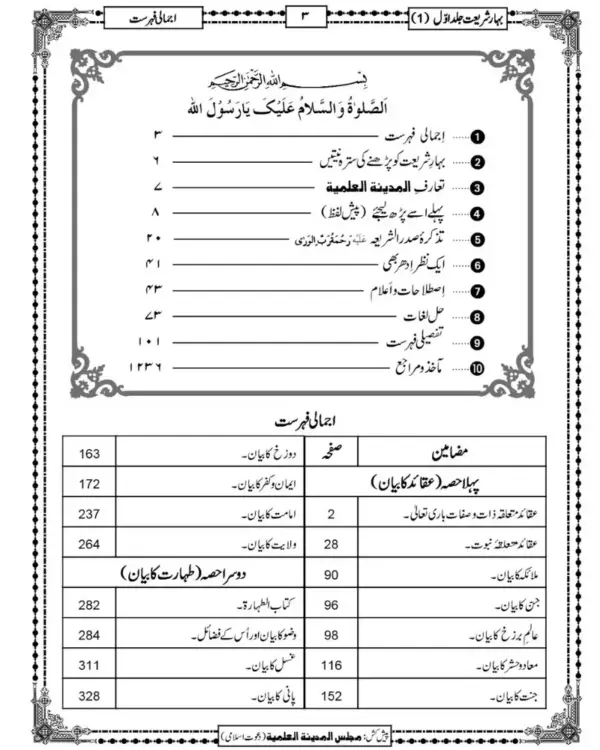 بہارِ شریعت جلد اوّل (1)
۳
اجمالی فہرست
بِسْمِ اللہِ الرَّحْمٰنِ الرَّحِیْمِ
اَلصَّلٰوۃُ وَالسَّلَامُ عَلَیْکَ یَارَسُوْلَ اللہ
1 ...... اِجمالی فہرست ۳
2 ...... بہارِ شریعت کو پڑھنے کی سترہ نیتیں ۶
3 ...... تعارفِ المدینة العلمیة ۷
4 ...... پہلے اسے پڑھ لیجئے (پیش لفظ) ۸
5 ...... تذکرۂ صدرالشریعہ عَلَیْہِ رَحْمَۃُ رَبِّ الْوَرٰی ۲۰
6 ...... ایک نظر اِدھر بھی ۴۱
7 ...... اِصطلاحات و اَعلام ۴۳
8 ...... حل لغات ۷۳
9 ...... تفصیلی فہرست ۱۰۱
10 ...... مآخذ و مراجع ۱۲۳۶
اجمالی فہرست
مضامین صفحہ
پہلا حصہ (عقائد کا بیان)
عقائد متعلقہ ذات و صفات باری تعالیٰ۔ 2
عقائد متعلقۂ نبوت۔ 28
ملائکہ کا بیان۔ 90
جن کا بیان۔ 96
عالمِ برزخ کا بیان۔ 98
معاد و حشر کا بیان۔ 116
جنت کا بیان۔ 152
دوزخ کا بیان۔ 163
ایمان و کفر کا بیان۔ 172
امامت کا بیان۔ 237
ولایت کا بیان۔ 264
دوسرا حصہ (طہارت کا بیان)
کتاب الطہارۃ۔ 282
وضو کا بیان اور اُس کے فضائل۔ 284
غسل کا بیان۔ 311
پانی کا بیان۔ 328
پیش کش: مجلس المدینة العلمیة (دعوت اسلامی)